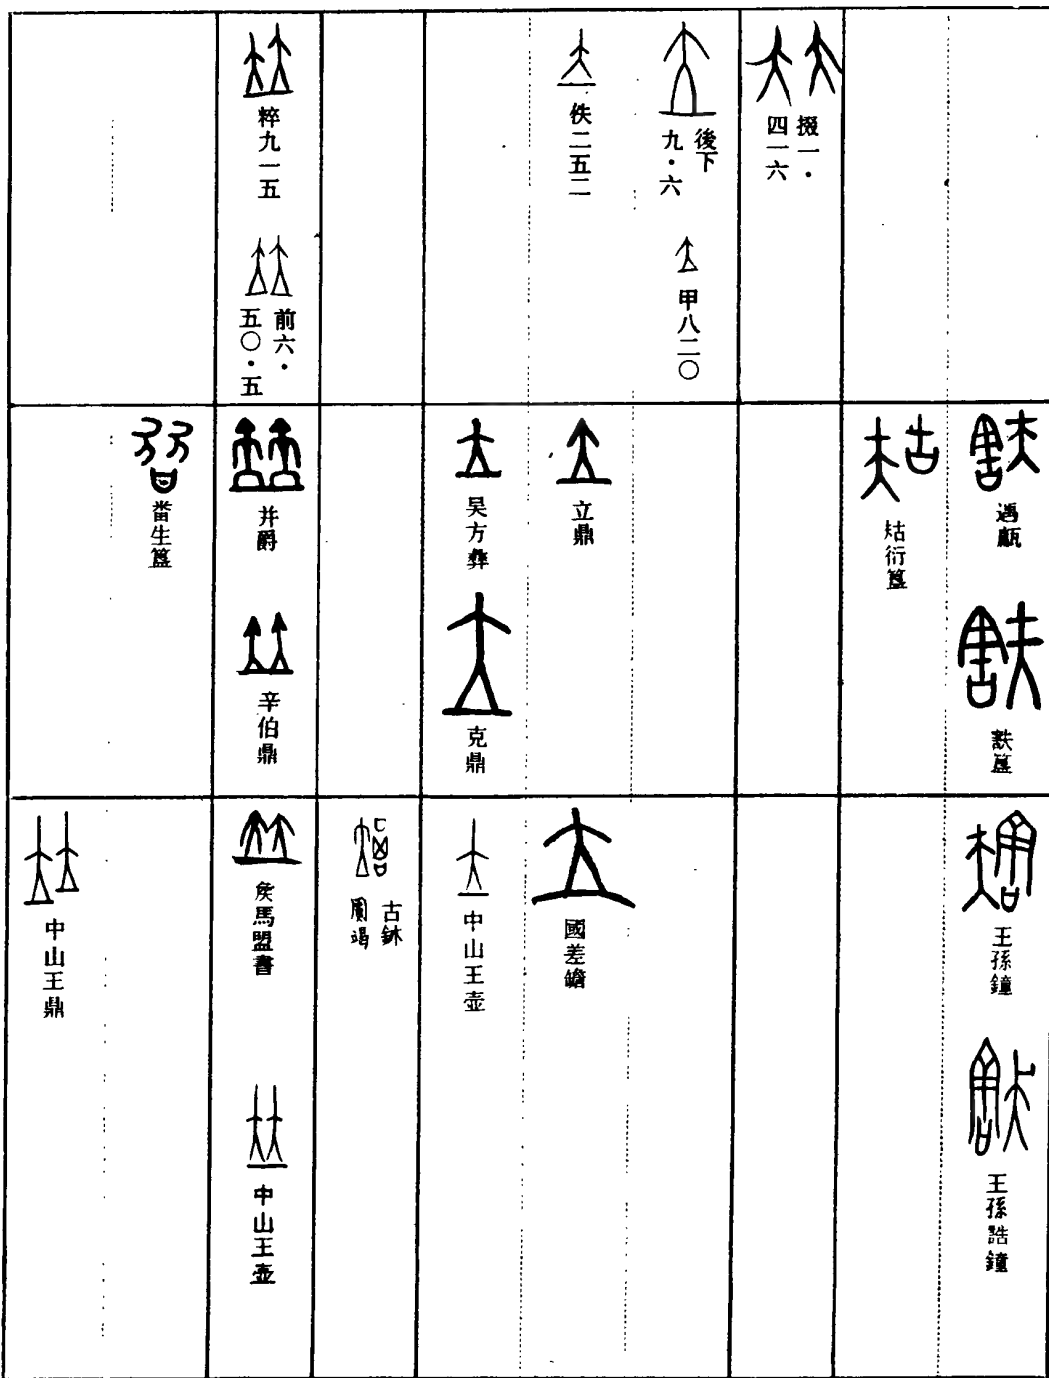 掇一・
四一六
後下
九・六
甲八二〇
佚二五二
粹九一五
前六・
五〇・五
遇甗
㝬簋
立鼎
吴方彝
克鼎
并爵
辛伯鼎
番生簋
王孫鐘
王孫誥鐘
國差𦉜
中山王壺
古鉢
侯馬盟書
中山王壺
中山王鼎